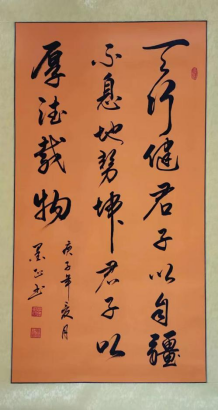 天行健君子以自疆
不息地势坤君子以
厚德载物
庚子年夏月
墨正书